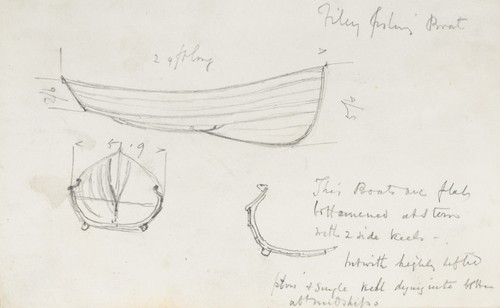 Filey fishing Boat
29 ft long
2/6
5/
5.9
This Boats are flat
bottomened at stern
with 2 side keels -
but with highly lifted
& single keel dying into
at midships